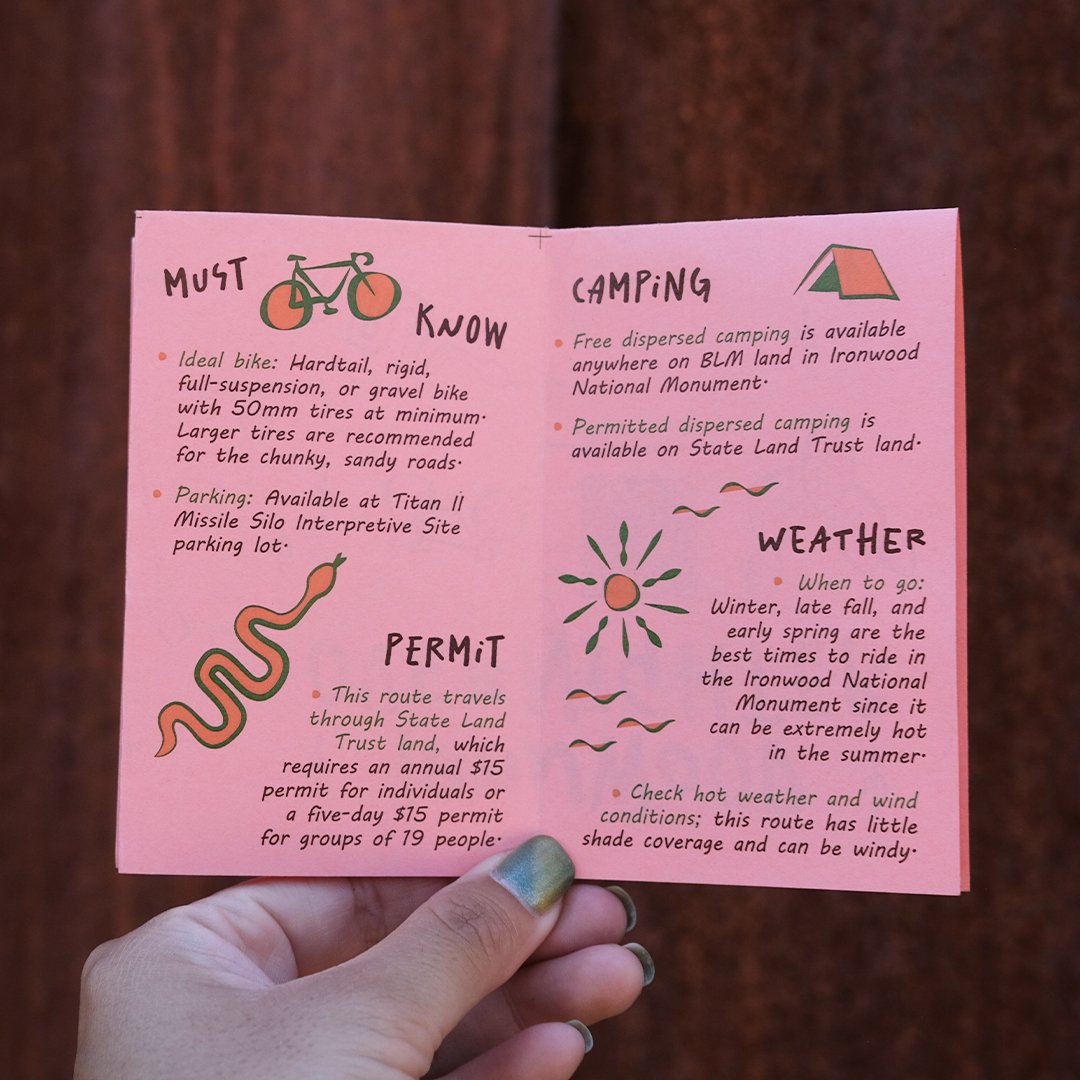 MUST
KNOW
• Ideal bike: Hardtail, rigid,
full-suspension, or gravel bike
with 50mm tires at minimum.
Larger tires are recommended
for the chunky, sandy roads.
• Parking: Available at Titan II
Missile Silo Interpretive Site
parking lot.
PERMiT
• This route travels
through State Land
Trust land, which
requires an annual $15
permit for individuals or
a five-day $15 permit
for groups of 19 people.
CAMPiNG
• Free dispersed camping is available
anywhere on BLM land in Ironwood
National Monument.
• Permitted dispersed camping is
available on State Land Trust land.
WEATHER
• When to go:
Winter, late fall, and
early spring are the
best times to ride in
the Ironwood National
Monument since it
can be extremely hot
in the summer.
• Check hot weather and wind
conditions; this route has little
shade coverage and can be windy.